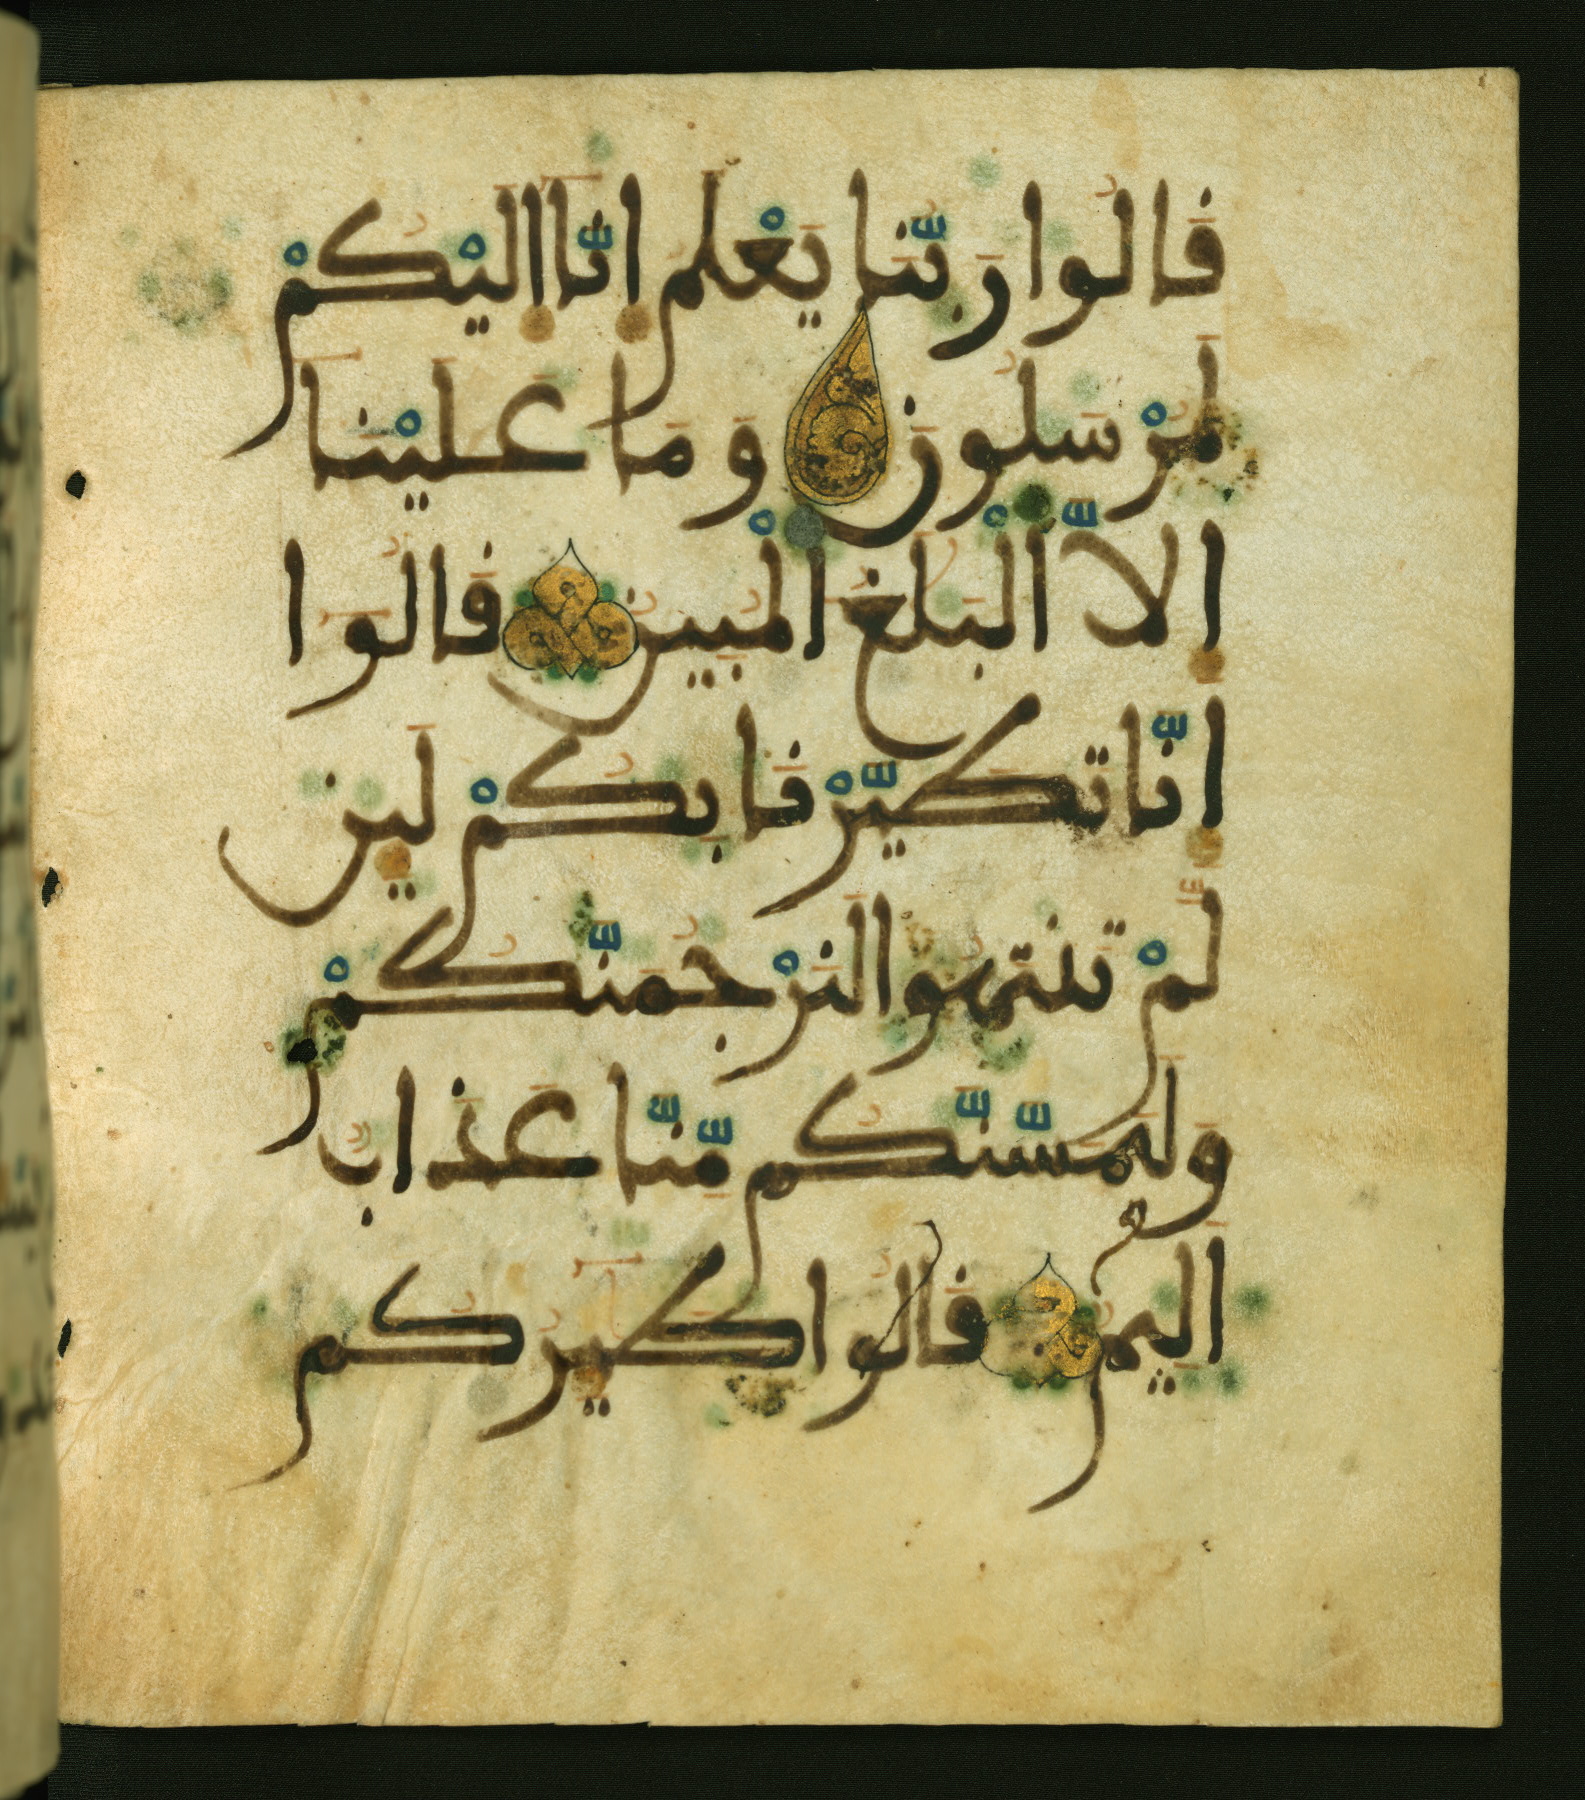 قَالُوا رَبُّنَا يَعْلَمُ إِنَّا إِلَيْكُمْ
لَمُرْسَلُونَ وَمَا عَلَيْنَا
إِلَّا الْبَلَٰغُ الْمُبِينُ قَالُوا
إِنَّا تَطَيَّرْنَا بِكُمْ لَئِن
لَّمْ تَنتَهُوا لَنَرْجُمَنَّكُمْ
وَلَيَمَسَّنَّكُم مِّنَّا عَذَابٌ
أَلِيمٌ قَالُوا طَٰٓئِرُكُم